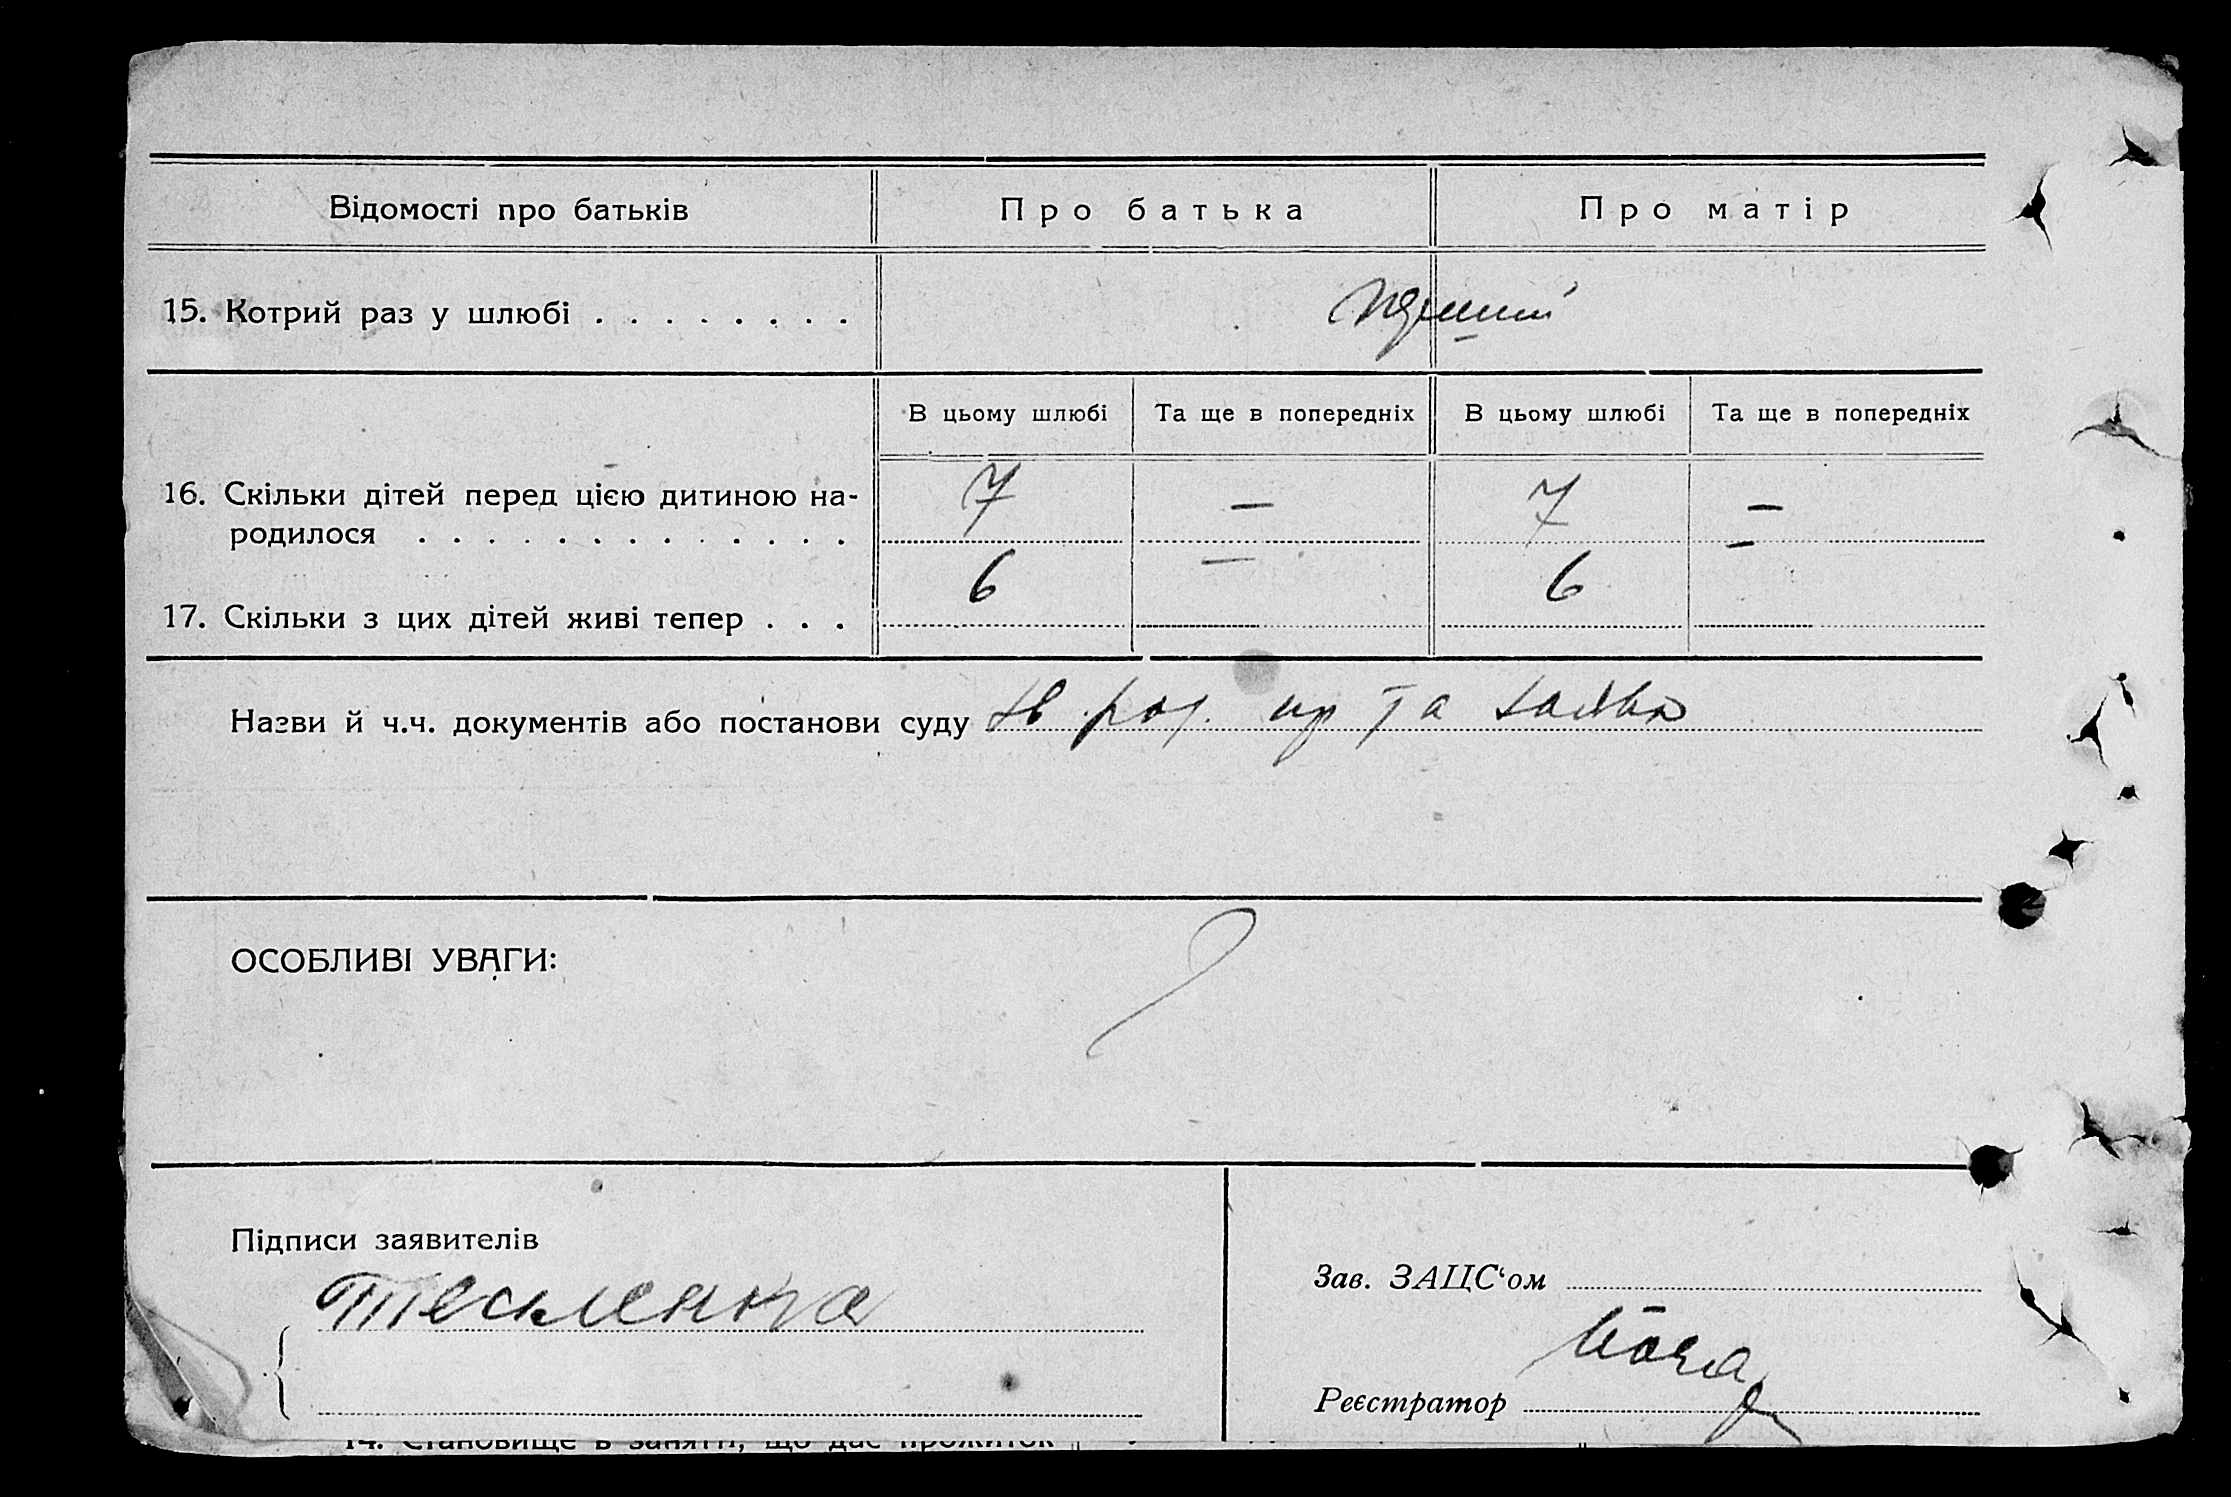 Відомості про батьків Про батька Про матір
15. Котрий раз у шлюбі . . . . . . . .
В цьому шлюбі Та ще в попередніх В цьому шлюбі Та ще в попередніх
16. Скільки дітей перед цією дитиною на- 7 — 7 —
родилося . . . . . . . . . . . . .
6 — 6 —
17. Скільки з цих дітей живі тепер . . .
Назви й ч.ч. документів або постанови суду та
ОСОБЛИВІ УВАГИ:
Підписи заявителів
Тесленко
Зав. ЗАЦС‘ом
Реєстратор
14. Становище в занятті, що дає прожиток